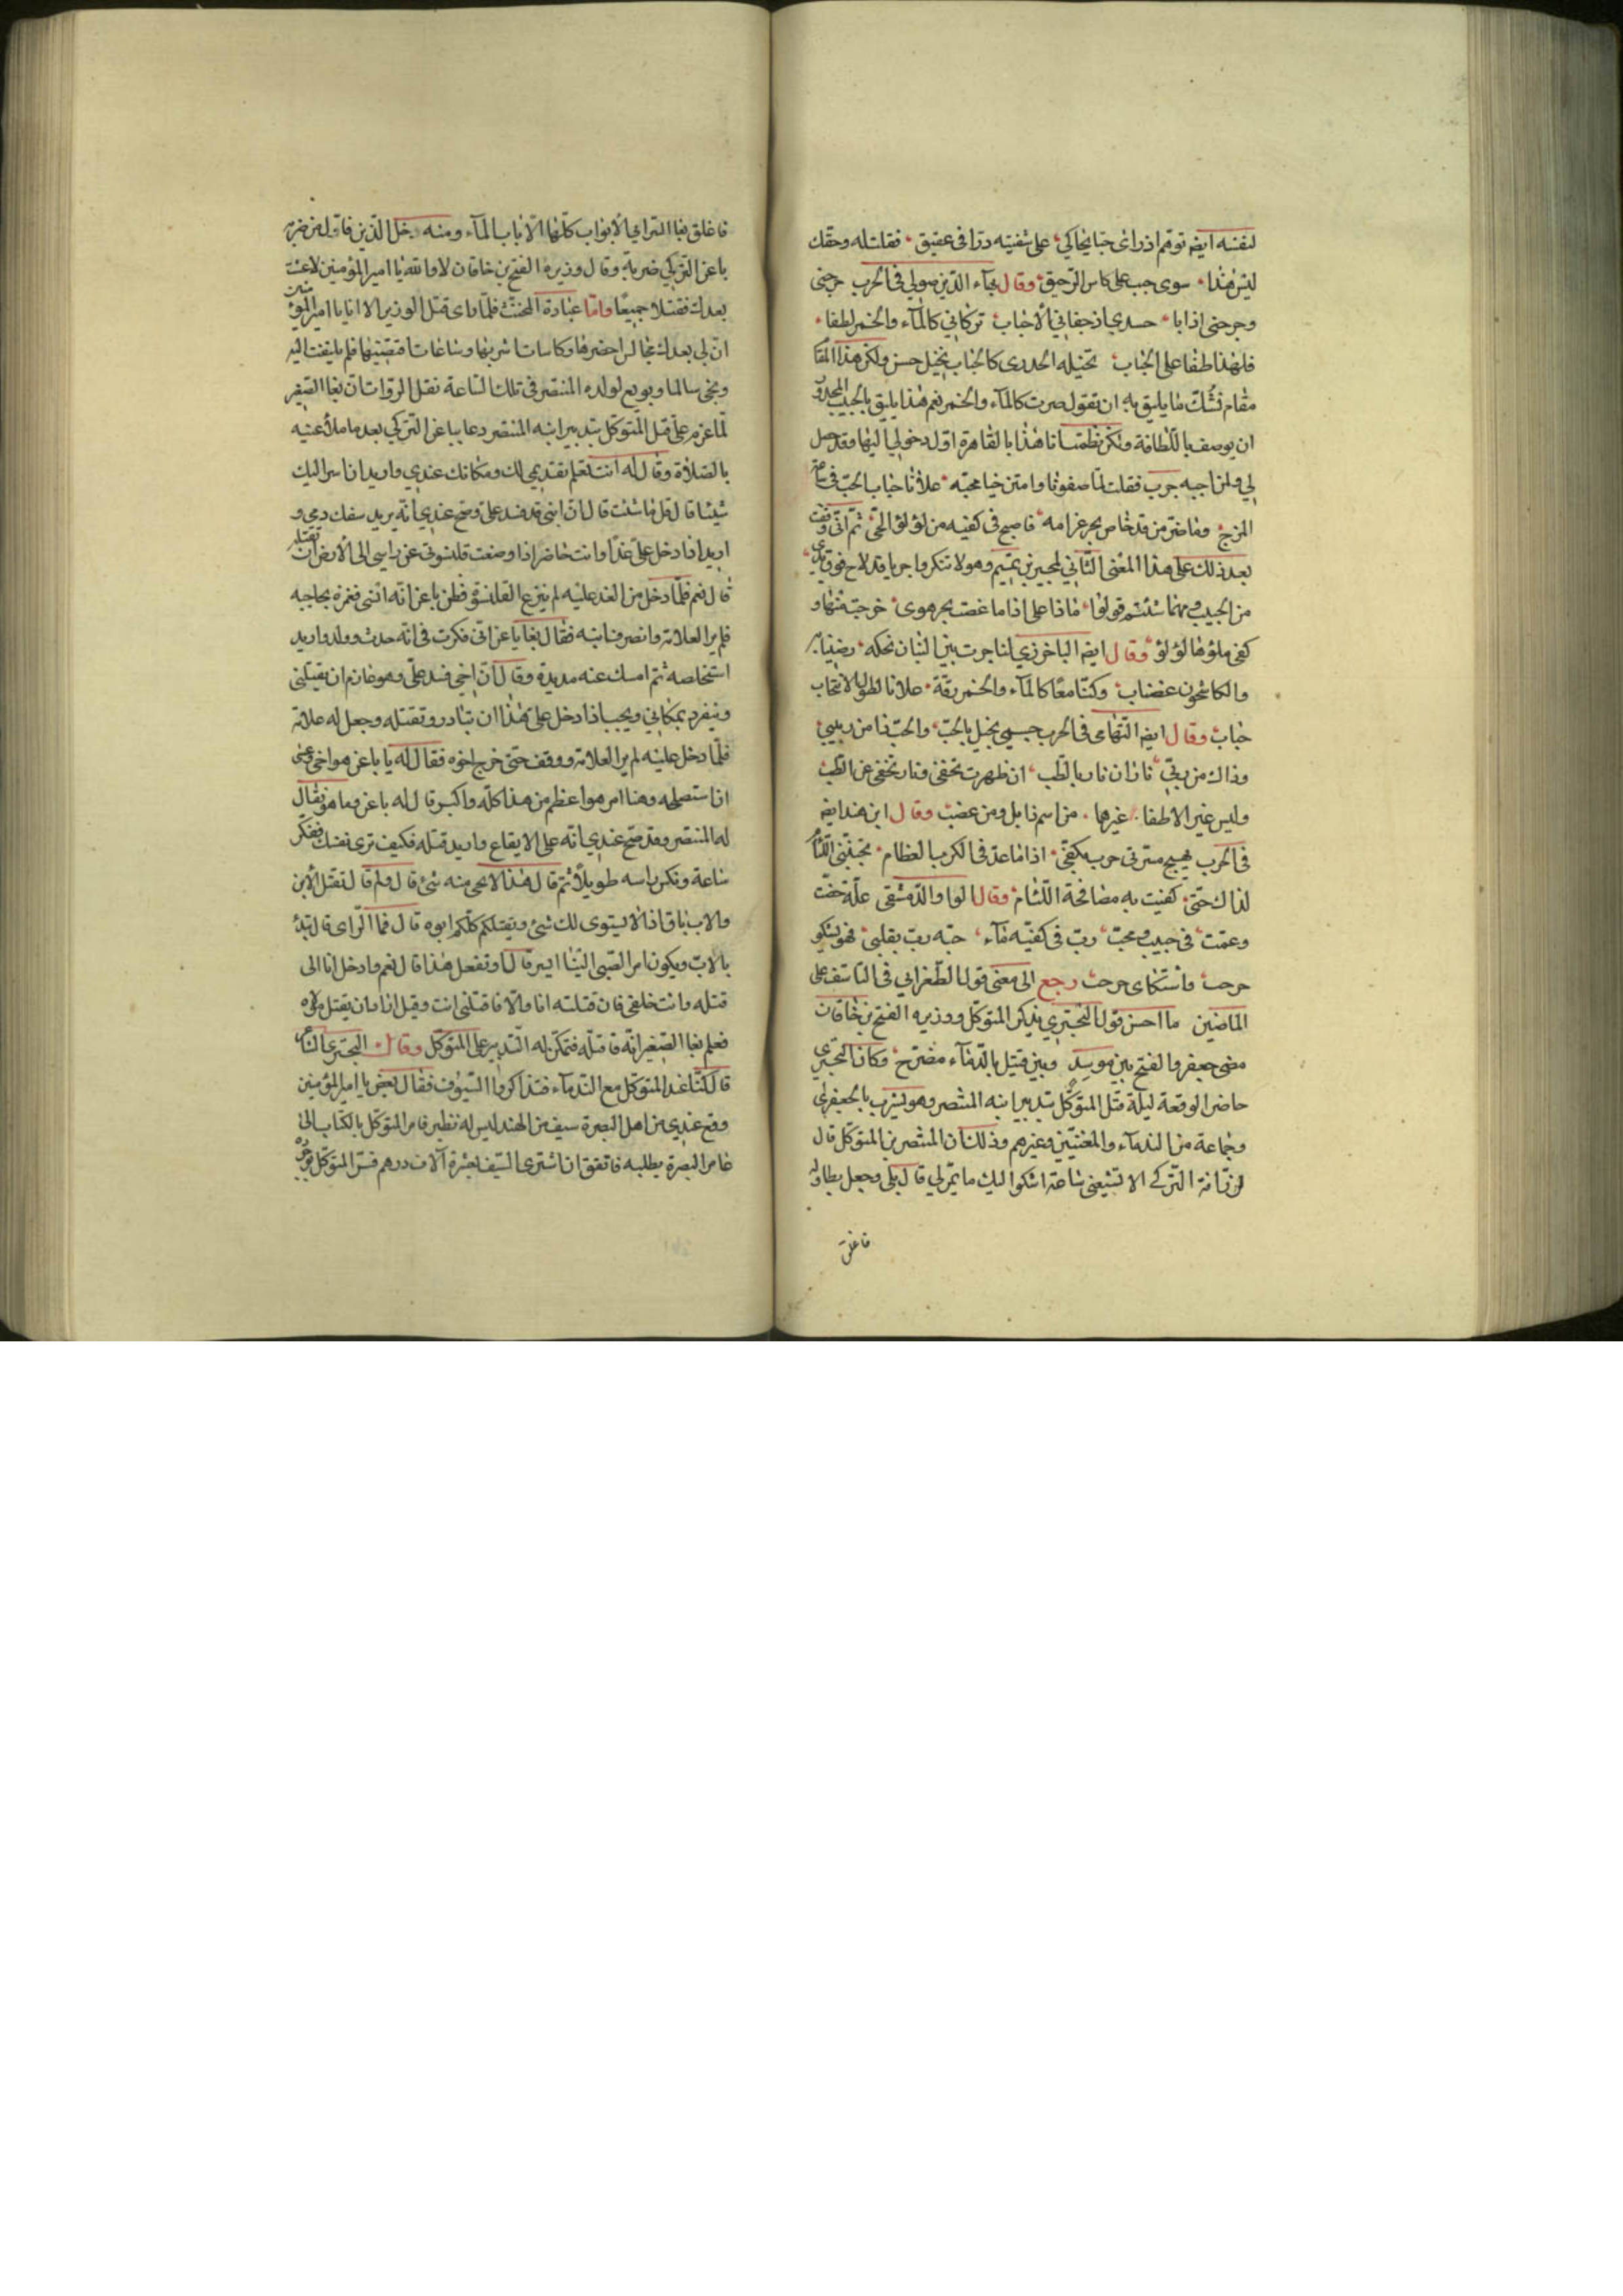 لنفسه ايضه توهم اذ رأى حبا يحاكي على شفتيه درا في عقيق فقلت له وحقك
ليس هذا سوى حبب على كاس الرحيق وقال بهاء الدين موالي في الحرب
جسدي اذ جفاني الأحباب تركاني كالماء والخمر لطفا
فلهذا طفا على الحباب تخيله الجدري كالحباب تخيل حسن ولكن هذا المقا
مقام ما يليق به ان تقول صرت كالماء والخمر نعم هذا يليق بالحبيب المجدور
ان يوصف باللطافة ولكن نظمت انا هذا بالقاهرة اول دخولي اليها وقد حصل
لي ولمن احبه جرب فقلت لما صفونا وامتزجنا محبة علانا حباب الحب في ساعة
المزج وما ضر من قد خاض بحر غرامه فاصبح في كفيه من لؤلؤ ثم اني وقفت
بعد ذلك على هذا المعنى الثاني لمجير بن تميم وهو لا تنكروا جربا قد لاح فوق يدي
من الحبيب ومهما شئتم قولوا ماذا على اذا ما غصت بحر هوى خرجت منها و
كفى ملؤها لؤلؤ وقال ايضه الباخرزي لنا جرب بين البنان نحكه رضينا به
والكاشحون غضاب وكنا معا كالماء والخمر رقة علانا لطول الانتحاب
حباب وقال ايضه التهامي في الحرب جسمي بخيل بالحب والحب ذا من ربيبي
وذاك من ربي ناران نار بالطب ان ظهرت تخفى ونار تخفى عن الطب
وليس غير الاطفا غيرها من اسم ذابل ومن عضب وقال ابن هند ايضه
في الحرب يهيج مسرتي حرب بكفي اذا ما عد في الكرب العظام تجنبني اللئا
لذاك حتى كفيت به مصافحة اللئام وقال الواوا الدمشقي علة خصت
وعمت في حبيب ومحب دب في كفيه ماء حبه دب بقلبي فهو يشكو
حر حب واشتكاى حر حب رجع الى معنى قول الطغرائي في التاسف على
الماضين ما احسن قول البحتري يذكر المتوكل ووزيره الفتح بن خاقان
مضى جعفر والفتح بين موسد وبين قتيل بالدماء مضرج وكان البحتري
حاضر الوقعة ليلة قتل المتوكل بتدبير ابنه المنتصر وهو يشرب بالجعفري
وجماعة من الندماء والمغنيين وغيرهم وذلك ان المنتصر بن المتوكل قال
التركي الا تشيعني ساعة اشكو اليك ما يمر لي قال بلى وجعل يطاوله
فاغلق
فاغلق بغا الشرابي الأبواب كلها الا باب الماء ومنه دخل الذين فاول من ضربه
باغر التركي ضربة وقال وزيره الفتح بن خاقان لا والله يا امير المؤمنين لا عشت
بعدك فقتلا جميعا واما عبادة المخنث فلما راى قتل الوزير الا انا يا امير المؤمنين
ان لي بعدك مجالس احضرها وكاسات اشربها وساعات اقضيها فلم يلتفت اليه
ونجى سالما وبويع لولده المنتصر في تلك الساعة نقل الروات ان بغا الصغير
لما عزم على قتل المتوكل بتدبير ابنه المنتصر دعا بباغر التركي بعد ما ملأ عينيه
بالصلاة وقال له انت تعلم تقديمي لك ومكانك عندي واريد ان اسر اليك
شيئا قال قل ما شئت قال ان ابني قد فسد علي وصح عندي انه يريد سفك دمي و
اريد اذا دخل علي غدا وانت حاضر اذا وضعت قلنسوتي عن راسي الى الأرض ان تقتله
قال نعم فلما دخل من الغد عليه لم ينزع القلنسوة فظن باغر انه انسي فغمزه بحاجبه
فلم ير العلامة وانصرف ابنه فقال بغا يا باغر اني فكرت في انه حدث وولد واريد
استخلصه ثم امسك عنه مديدة وقال ان اخي فسد علي وهو عازم ان يقتلني
وينفرد بمكاني ويجب اذا دخل علي هذا ان تبادر وتقتله وجعل له علامة
فلما دخل عليه لم ير العلامة ووقف حتى خرج اخوه فقال له يا باغر هو اخي وعسى
ان استصلحه وهنا امر هو اعظم من هذا كله واكبر قال له باغر وما هو فقال
له المنتصر وقد صح عندي انه على الايقاع واريد قتله فكيف ترى نفسك ففكر
ساعة ونكس راسه طويلا ثم قال هذا لا يجي منه شئ قال ولم قال تقتل الابن
والاب باق اذا لا يستوى لك شئ ويقتلكم كلكم ابوه قال فما الراى قال نبدأ
بالاب ويكون امر الصبي الينا ايسر قال او تفعل هذا قال نعم وادخل انا الى
قتله وانت خلفي فان قتلته انا والا فاقتلني انت وقيل اراد ان يقتل مولاه
فعلم بغا الصغير انه قاتله فتمكن له التدبير على المتوكل وقال البحتري الشاعر
قال كنا عند المتوكل مع الندماء فتذاكروا السيوف فقال بعض يا امير المؤمنين
وقع عندي من اهل البصرة سيف من الهند ليس له نظير فامر المتوكل بالكتاب الى
عامر البصرة يطلبه فاتفق ان اشترى السيف بعشرة آلاف درهم فسر المتوكل